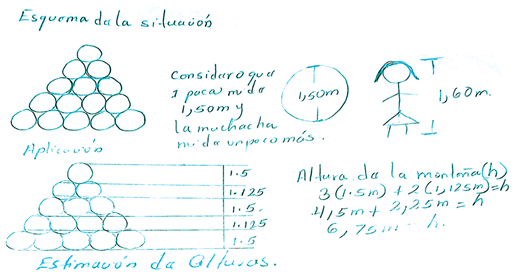 Esquema de la situación
Considero que
1 paca mide
1,50m y
la muchacha
mide un poco más.
1,50m
1,60m.
Aplicación
1.5
1.125
1.5.
1.125
1.5
Estimación de Alturas.
Altura de la montaña (h)
3(1.5m) + 2(1,125m)=h
4,5m + 2,25m = h
6,75m = h.